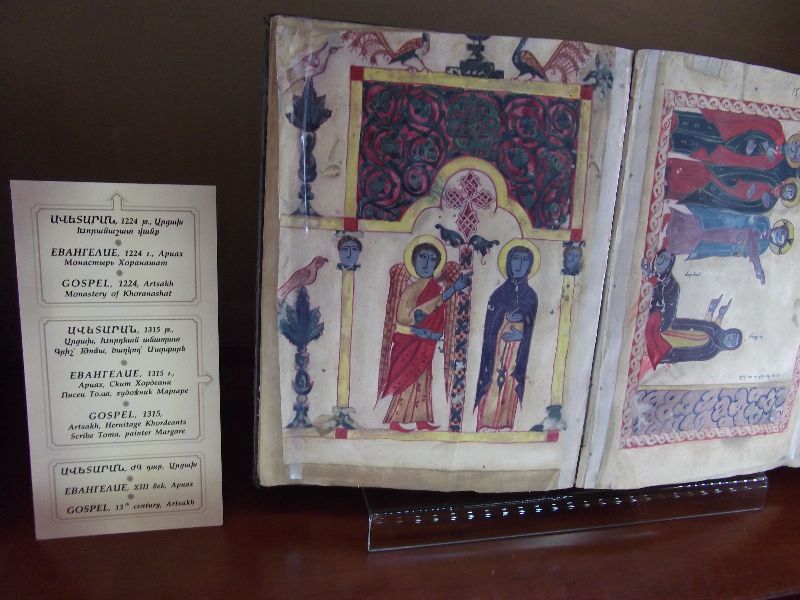 ԱՎԵՏԱՐԱՆ, 1224 թ., Արցախ
Խորանաշատ վանք
ЕВАНГЕЛИЕ, 1224 г., Арцах
Монастырь Хоранашат
GOSPEL, 1224, Artsakh
Monastery of Khoranashat
ԱՎԵՏԱՐԱՆ, 1315 թ.,
Արցախ, Խորդեանն անապատ
Գրիչ՝ Թումա, ծաղկող՝ Մարգարե
ЕВАНГЕЛИЕ, 1315 г.,
Арцах, Скит Хордеанц
Писец Тома, художник Маргаре
GOSPEL, 1315,
Artsakh, Hermitage Khordeants
Scribe Toma, painter Margare
ԱՎԵՏԱՐԱՆ, ԺԳ դար, Արցախ
ЕВАНГЕЛИЕ, XIII век, Арцах
GOSPEL, 13th century, Artsakh